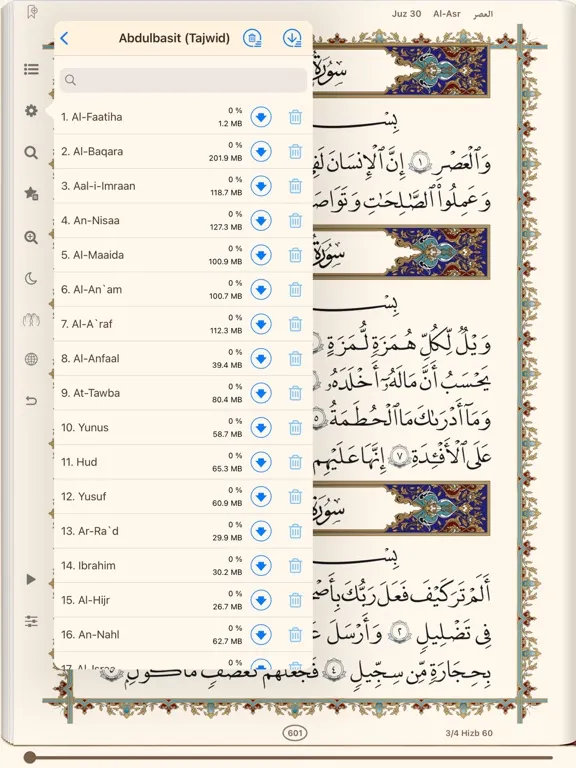 Juz 30 Al-Asr العصر
Abdulbasit (Tajwid)
1. Al-Faatiha 0 % 1.2 MB
2. Al-Baqara 0 % 201.9 MB
3. Aal-i-Imraan 0 % 118.7 MB
4. An-Nisaa 0 % 127.3 MB
5. Al-Maaida 0 % 100.9 MB
6. Al-An`am 0 % 100.7 MB
7. Al-A`raf 0 % 112.3 MB
8. Al-Anfaal 0 % 39.4 MB
9. At-Tawba 0 % 80.4 MB
10. Yunus 0 % 58.7 MB
11. Hud 0 % 65.3 MB
12. Yusuf 0 % 60.9 MB
13. Ar-Ra`d 0 % 29.9 MB
14. Ibrahim 0 % 30.2 MB
15. Al-Hijr 0 % 26.7 MB
16. An-Nahl 0 % 62.7 MB
17. Al-Israa 0 %
سُورَةُ
بِسْ
وَٱلْعَصْرِ ١ إِنَّ ٱلْإِنسَٰنَ لَفِ
وَعَمِلُوا۟ ٱلصَّٰلِحَٰتِ وَتَوَاصَ
سُورَةُ
بِسْ
وَيْلٌ لِّكُلِّ هُمَزَةٍ لُّمَزَةٍ
يَحْسَبُ أَنَّ مَالَهُۥٓ أَخْلَدَهُۥ
وَمَآ أَدْرَىٰكَ مَا ٱلْحُطَمَةُ ٥
عَلَى ٱلْأَفْـِٔدَةِ ٧ إِنَّهَا عَلَيْهِم
سُورَةُ
بِسْ
أَلَمْ تَرَ كَيْفَ فَعَلَ رَبُّكَ بِأَصْ
فِى تَضْلِيلٍ ٢ وَأَرْسَلَ عَ
بِحِجَارَةٍ مِّن سِجِّيلٍ ٤ فَجَعَلَهُمْ كَعَصْفٍ مَّأْكُولٍۭ ٥
601
3/4 Hizb 60